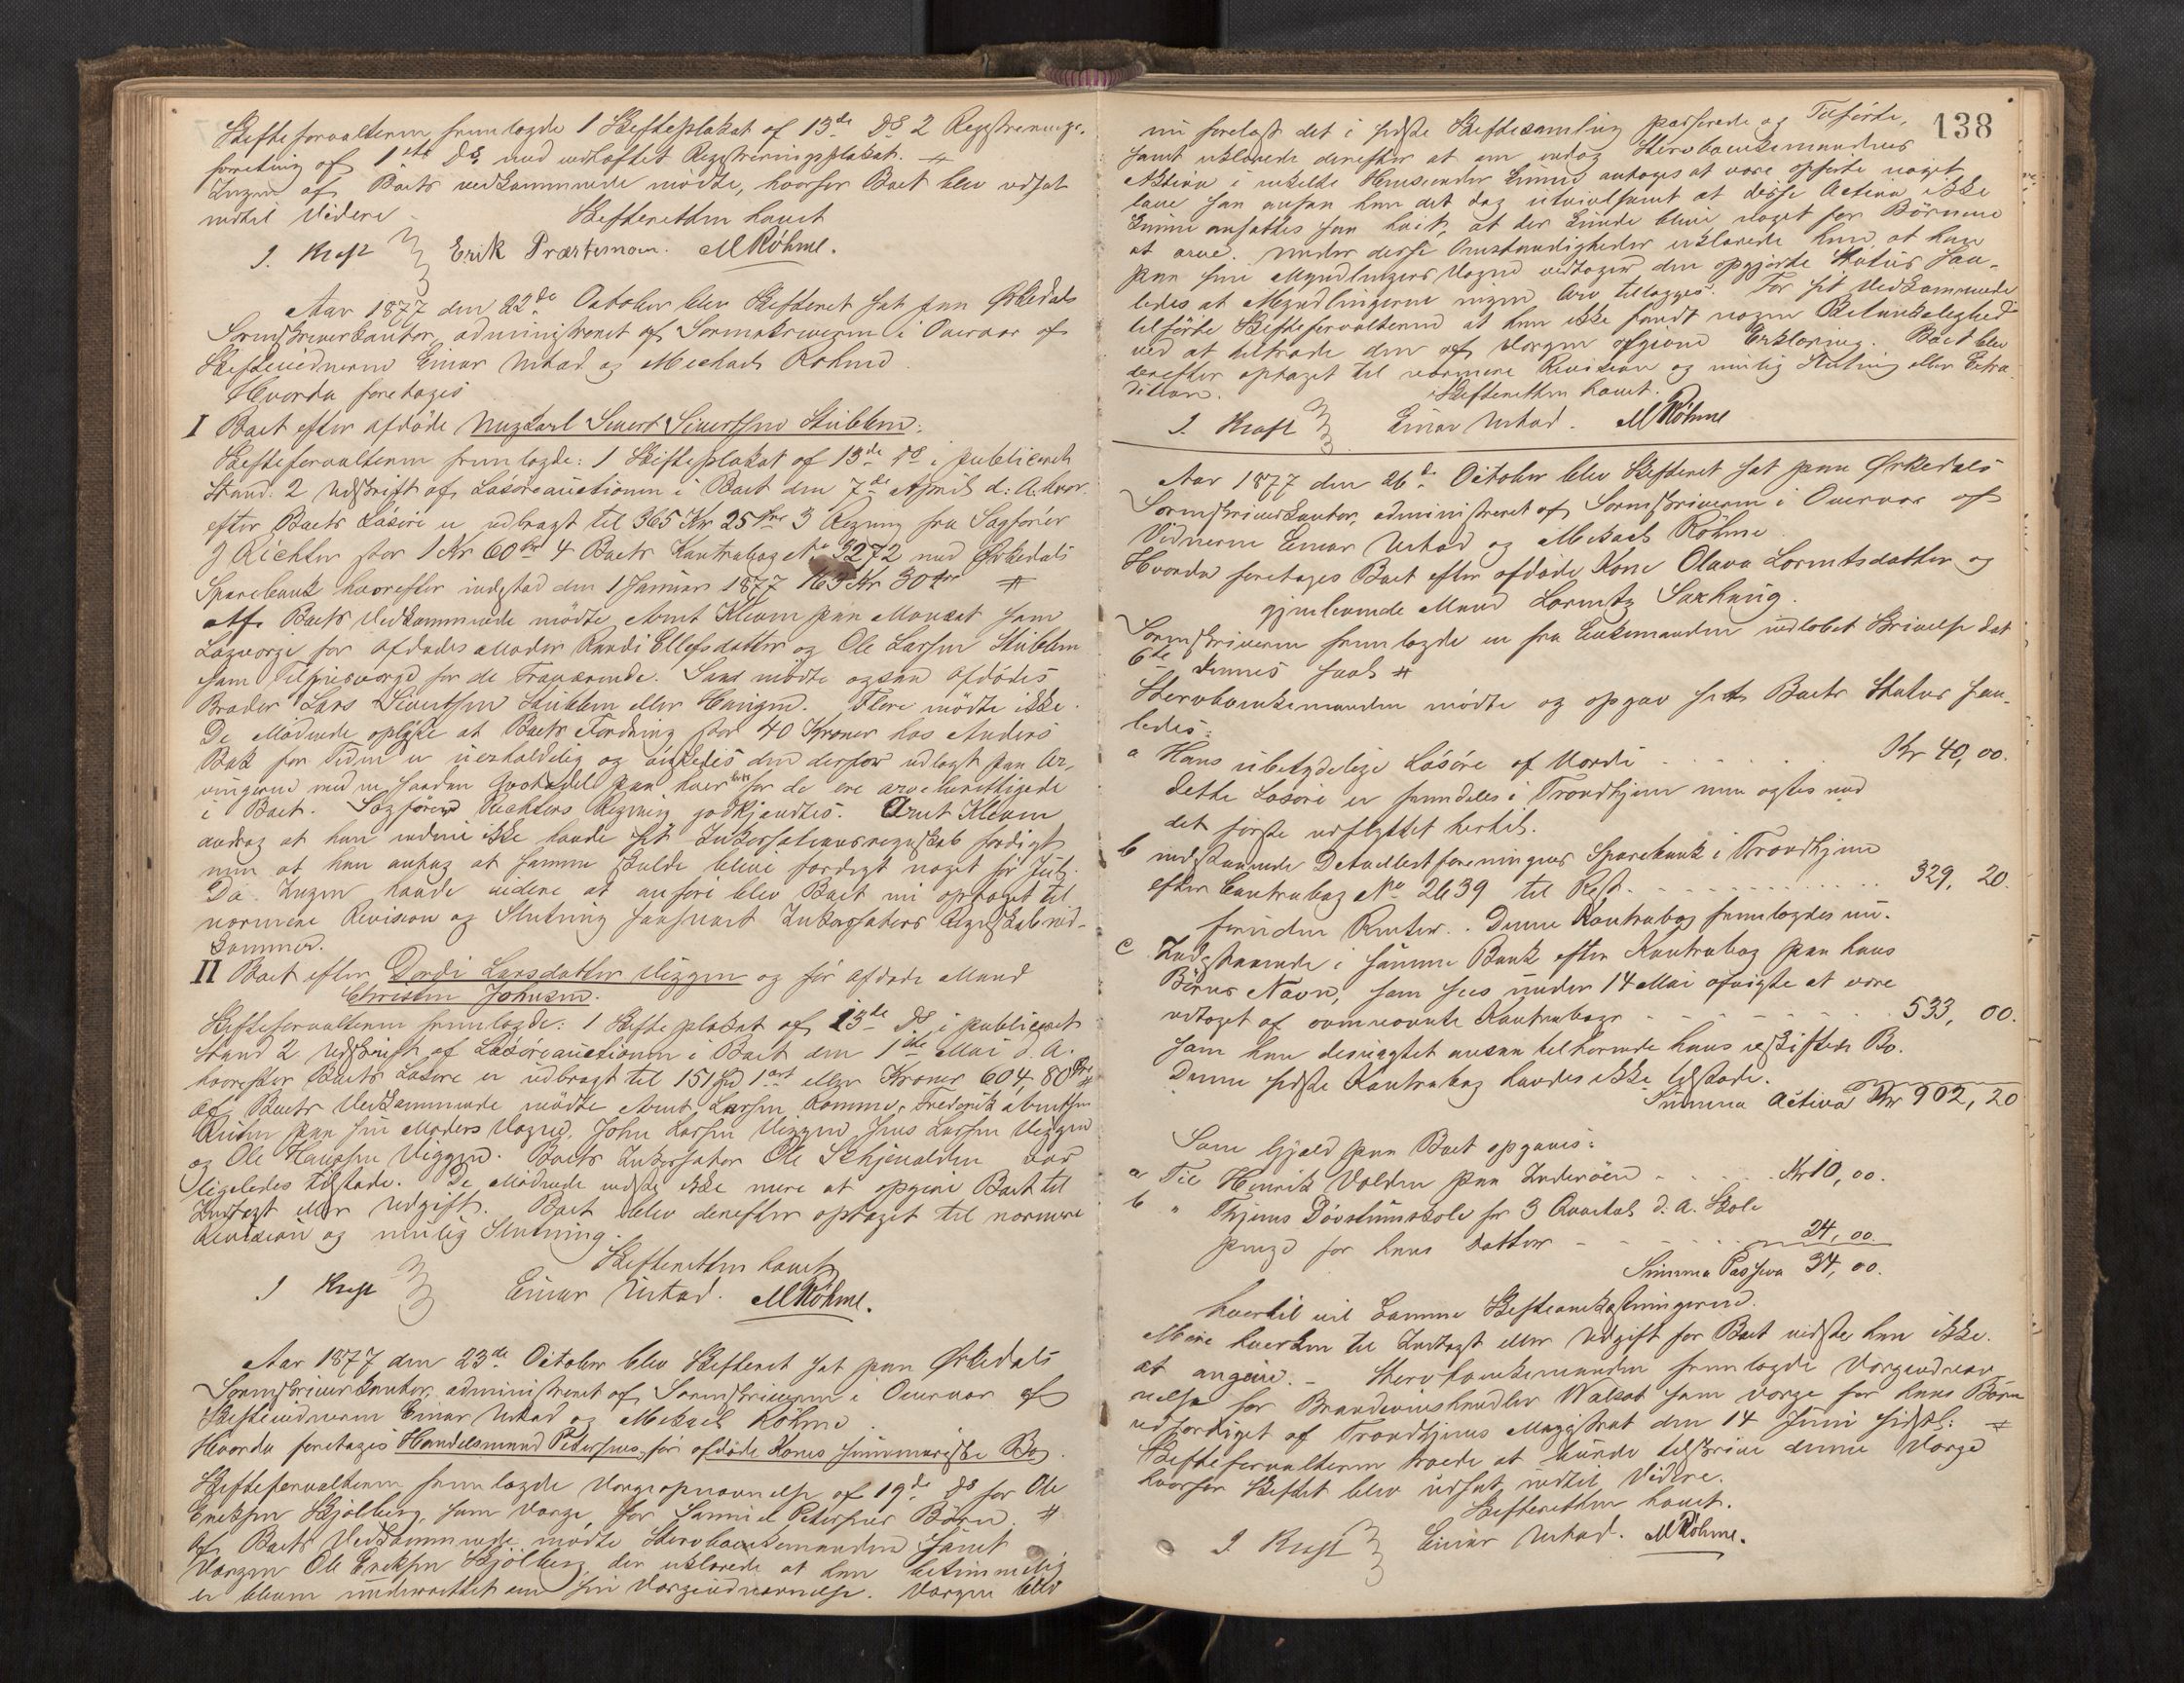 Skifteforvalteren fremlagde 1 Skifteplakat af 13de Ds 2 Registrerings-
forretning af 1ste Ds med vedhæftet Registreringsplakat. #
Ingen af Boets vedkommende mødte, hvorfor Boet blev udsat
indtil Videre. Skifteretten hævet
J. Kraft Erik Præstemoen. M Röhme.
Aar 1877 den 22de October blev Skifteret sat paa Ørkedals
Sorenskriverkontor, administreret af Sorenskriveren i Overvær af
Skiftevidnerne Einar Urstad og Michael Röhme.
Hvorda foretoges
I Boet efter afdøde Ungkarl Sivert Sivertsen Stubben.
Skifteforvalteren fremlagde: 1 Skifteplakat af 13de Ds i publiceret
Stand. 2 Udskrift af Løsøreauctionen i Boet den 7de April d: A. hvor-
efter Boets Løsøre er udbragt til 365 Kr 25 Øre 3 Regning fra Sagfører
J Richter stor 1 Kr 60 Øre 4 Boets Kontrabog No 3272 med Ørkedals
Sparebank hvorefter indestod den 1 Januar 1877 163 Kr 30 Øre #
Af Boets Vedkommende mødte Arnt Kleven paa Moussat som
Laugværge for Afdødes Moder Randi Ellefsdatter og Ole Larsen Stubben
som Tilsynsværge for de Fraværende. Saa mødte ogsaa Afdødes
Broder Lars Sivertsen Stubben eller Haugen. Flere mødte ikke.
De Mødende oplyste at Boets Fordring stor 40 Kroner hos Anders
Bak for Tiden er uerholdelig og ønskedes den derfor udlagt paa Ar-
vingerne med en saadan Qvotadel paa hver som for de ere arveberettigede
i Boet. Sagfører Richters Regning godkjendtes. Arnt Kleven
androg at han endnu ikke havde sit Inkassationsregnskab færdigt,
men at han antog at samme skulde blive færdigt noget før Jul.
Da Ingen havde videre at anføre blev Boet nu optaget til
nærmere Revision og Slutning saasnart Inkassators Regnskab ind-
kommer.
II Boet efter Dordi Larsdatter Viggen og før afdøde Mand
Christen Johnsen.
Skifteforvalteren fremlagde: 1 Skifteplakat af 13de Ds i publiceret
Stand 2 Udskrift af Løsøreauctionen i Boet den 1ste Mai d. A.
hvorefter Boets Løsøre er udbragt til 151 Spd 1 ort eller Kroner 604, 80 Øre #
Af Boets Vedkommende mødte Arnt Larsen Komme, Frederik Arntsen
paa sin Moders Vegne, John Larsen Viggen Jens Larsen Viggen
og Ole Hansen Viggen. Boets Inkassator Ole Schjenalden var
ligeledes tilstede. De Mødende vidste ikke mere at opgive Boet til
Indtægt eller Udgift. Boet blev derefter optaget til nærmere
Revision og mulig Slutning.
Skifteretten hævet
J Kraft Einar Urstad. M Röhme.
Aar 1877 den 23de October blev Skifteret sat paa Ørkedals
Sorenskriverkontor, administreret af Sorenskriveren i Overvær af
Skiftevidnerne Einar Urstad og Mikael Röhme.
Hvorda foretoges Handelsmand Petersens før afdøde Kones summariske Bo.
Skifteforvalteren fremlagde Værgeopnævnelse af 19de Ds for Ole
Eriksen Kjølberg, som Værge for Samuel Petersens Børn. #
Af Boets Vedkommende mødte Stervboenkemanden samt
Værgen Ole Eriksen Kjølberg der erklærede at han betimmelig
er bleven underrettet om sin Værgeudnævnelse. Værgen blev
138
nu forelæst det i sidste Skiftesamling passerede og Tilførte,
samt erklærede derefter at om endog Stervboenkemandens
Aktiva i enkelte Henseender kunne antages at være opførte noget
lave saa ansaa han det dog utvivlsomt at disse Activa ikke
kunne ansættes saa høit, at der kunde blive noget for Børnene
at arve. Under disse Omstændigheder erklærede han, at han
paa sine Myndlingers Vegne vedtager den opgjorte Status saa-
ledes at Myndlingerne ingen Arv tillægges. For sit Vedkommende
tilførte Skifteforvalteren at han ikke fandt nogen Betænkelighed
ved at tiltræde den af Værgen afgivne Erklæring. Boet blev
derefter optaget til nærmere Revision og mulig Slutning eller Extra-
dition. Skifteretten hævet.
J. Kraft Einar Urstad. M Röhme
Aar 1877 den 26de October blev Skifteret sat paa Ørkedals
Sorenskriverkontor, administreret af Sorenskriveren i Overvær af
Vidnerne Einar Urstad og Mikael Röhme
Hvorda foretoges Boet efter afdøde Kone Olava Lorentsdatter og
gjenlevende Mand Lorentz Saxhaug.
Sorenskriveren fremlagde en fra Enkemanden indløbet Skrivelse dat
6te dennes saal. #
Stervboenkemanden mødte og opgav sit Boets Status saa-
ledes:
a Hans ubetydelige Løsøre af Værdi . . . . . Kr 40,00.
dette Løsøre er fremdeles i Trondhjem men agtes med
det første udflyttet hertil.
b indestaaende Detaillistforeningens Sparebank i Trondhjem
efter Contrabog No 2639 til Rest . . . . . . 329, 20.
foruden Renter. Denne Kontrabog fremlagdes nu.
c Indestaaende i samme Bank efter Kontrabog paa hans
Børns Navn, som sees under 14 Mai afvigte at være
udtaget af ovennævnte Kontrabog . . . . . 533, 00.
som han desuagtet ansaa tilhørende hans uskiftede Bo.
Denne sidste Kontrabog havdes ikke tilstede.
Summa Activa Kr 902, 20
Som Gjæld paa Boet opgaves:
a Til Henrik Volden paa Inderøen . . . . Kr 10,00.
b " Thjems Døvstumskole for 3 Quartal d. A. Skole
penge for hans datter . . . . . 24,00.
Summa Passiva 34,00.
hvortil vil komme Skifteomkostningerne.
Mere hverken til Indtægt eller Udgift for Boet vidste han ikke
at angive. - Stervboenkemanden fremlagde Værgeudnæv-
nelse for Brændevinshandler Walsøt som Værge for hans Børn
udfærdiget af Trondhjems Magistrat den 14 Juni sidstl: #
Skifteforvalteren troede at burde tilskrive denne Værge
hvorfor Skiftet blev udsat indtil Videre.
Skifteretten hævet.
J. Kraft Einar Urstad. M Röhme.